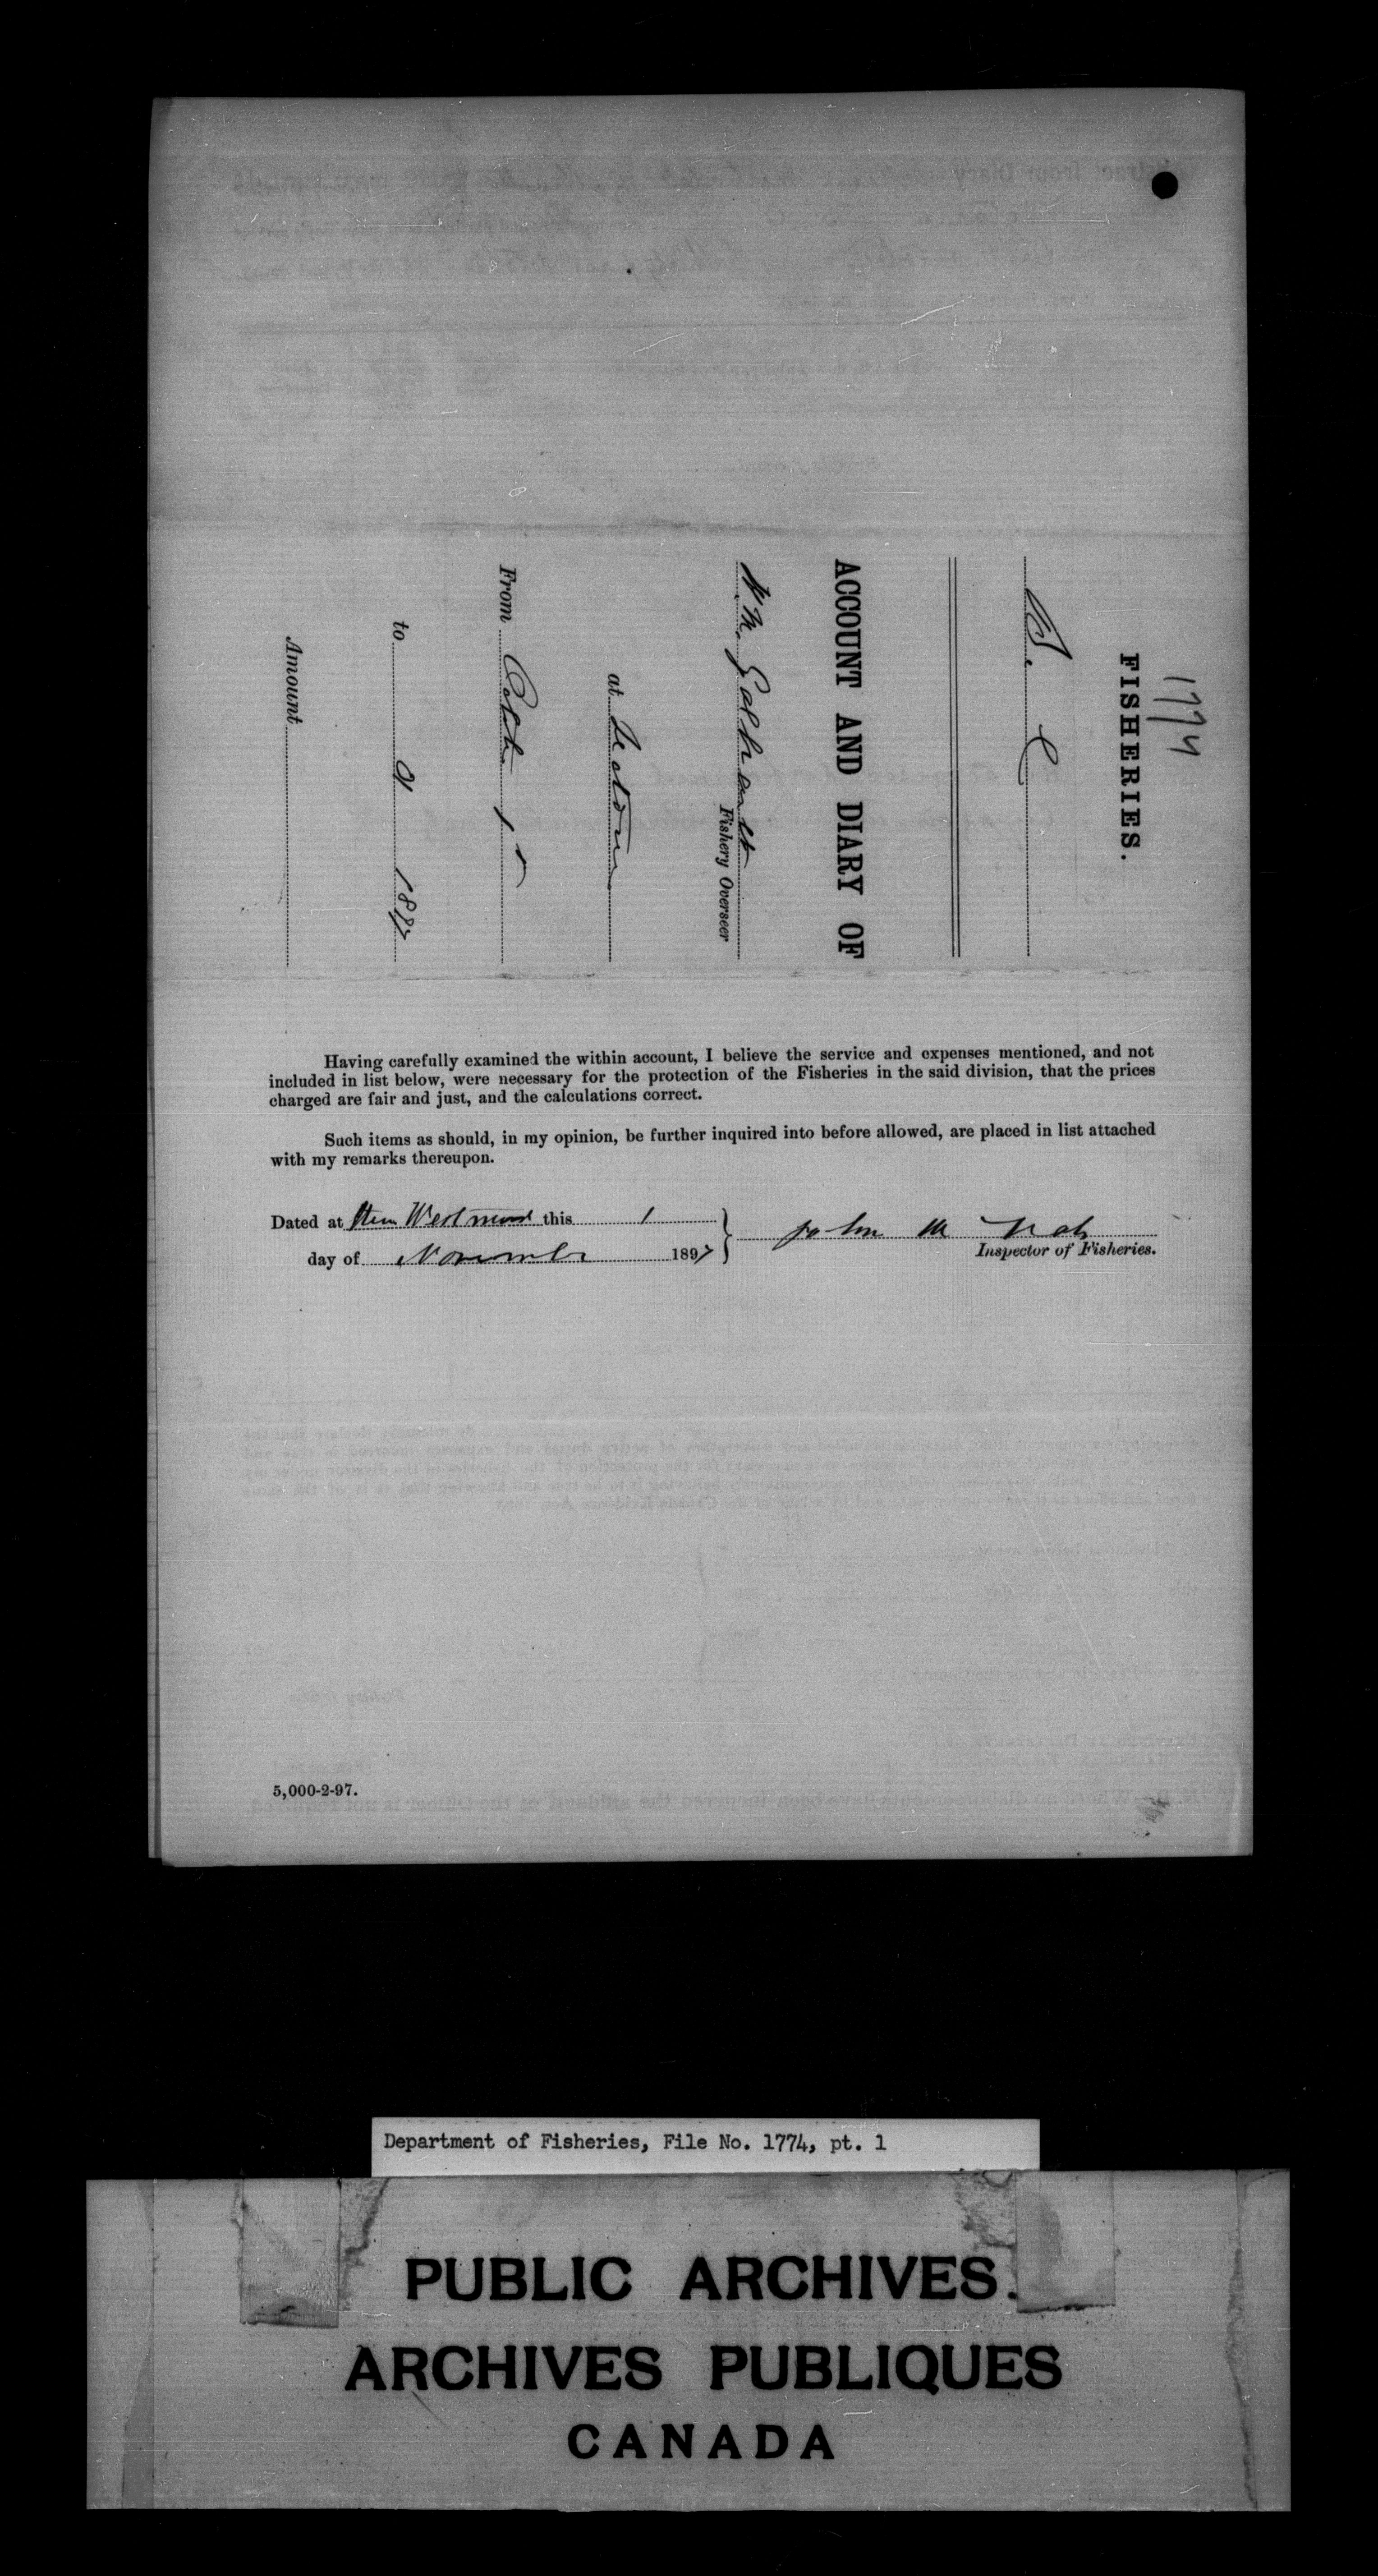 1774
FISHERIES.
B. C
ACCOUNT AND DIARY OF
Wm. Galbraith
Fishery Overseer
at
From Octbr 1
to 1897
Amount
Having carefully examined the within account, I believe the service and expenses mentioned, and not
included in list below, were necessary for the protection of the Fisheries in the said division, that the prices
charged are fair and just, and the calculations correct.
Such items as should, in my opinion, be further inquired into before allowed, are placed in list attached
with my remarks thereupon.
Dated at New Westmins this 1
day of November 1897
John M Nab
Inspector of Fisheries.
5,000-2-97.
Department of Fisheries, File No. 1774, pt. 1
PUBLIC ARCHIVES.
ARCHIVES PUBLIQUES
CANADA